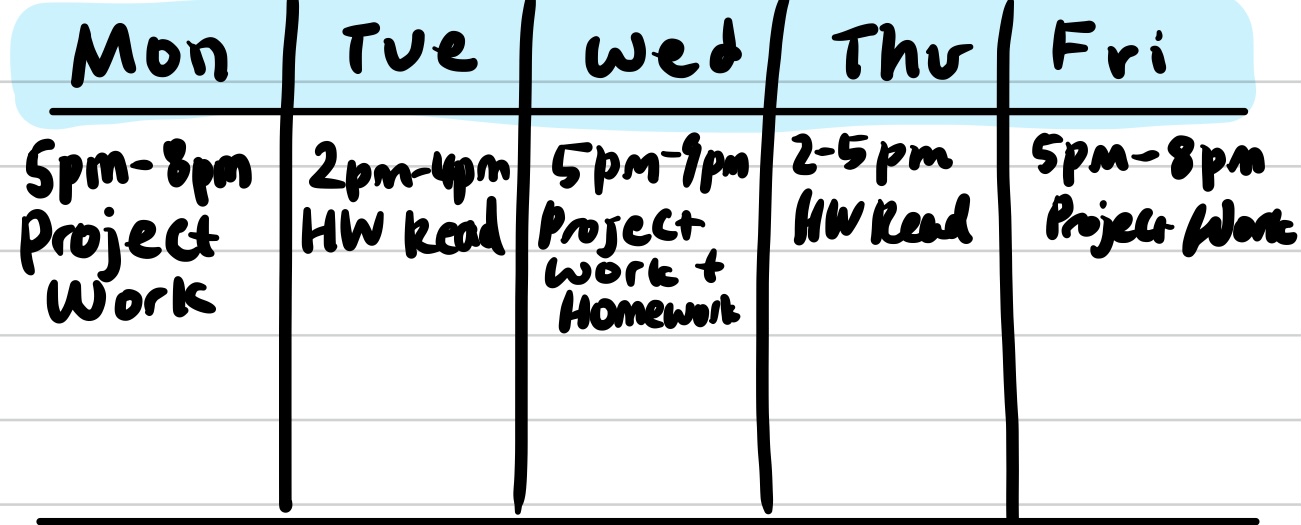 Mon Tue Wed Thu Fri
5pm-8pm
Project
Work
2pm-4pm
HW Read
5pm-9pm
Project
Work +
Homework
2-5pm
HW Read
5pm-8pm
Project Work